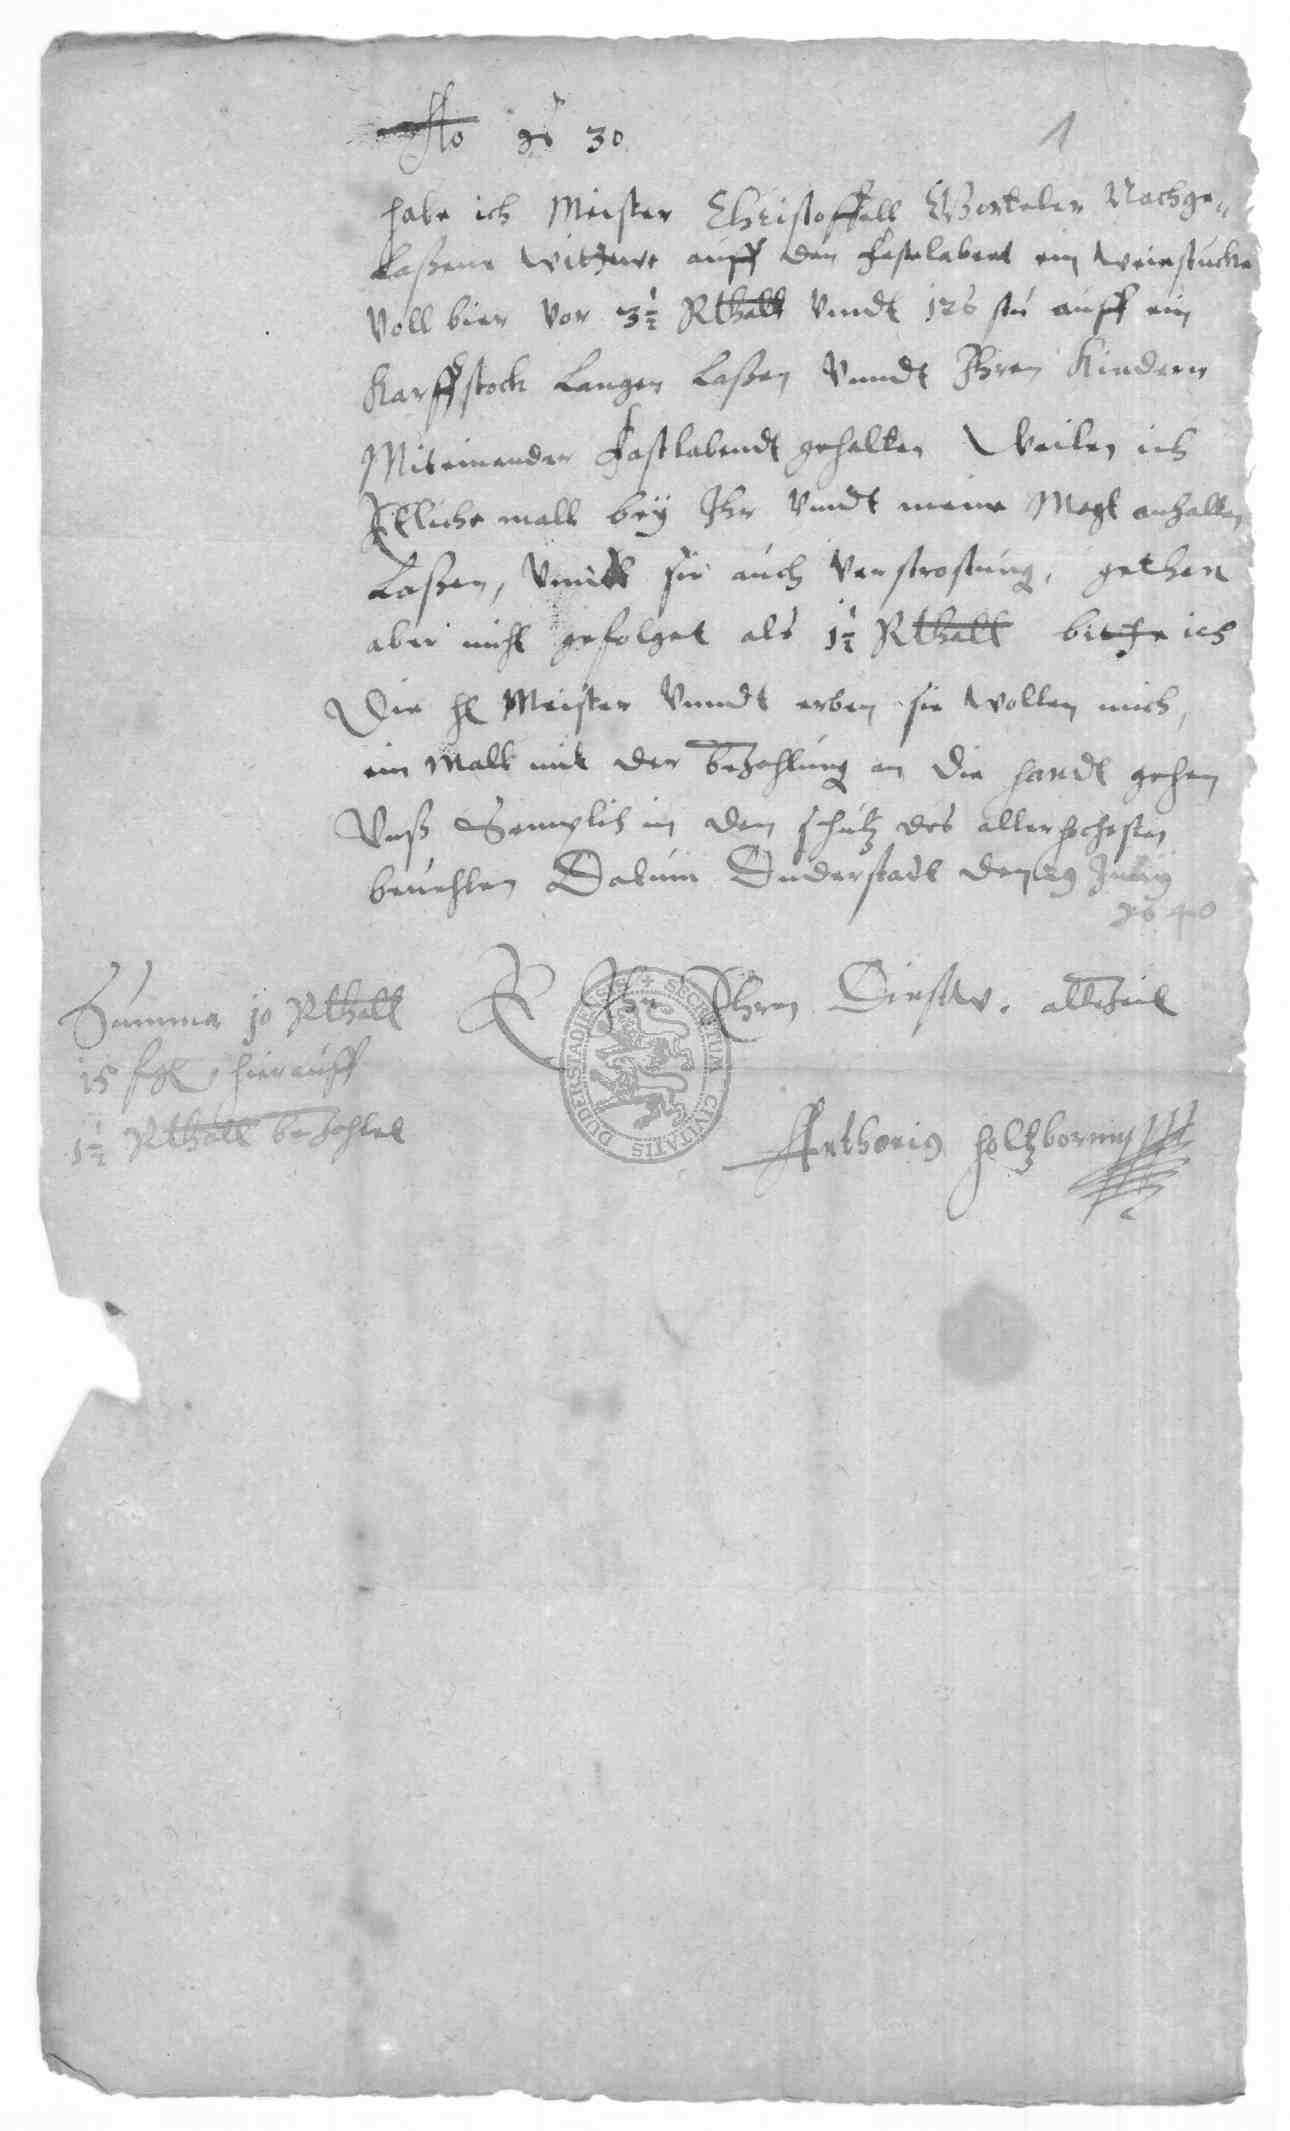 Ao 30
1
habe ich Meister Christoffell Workeler Nachge„
Laßene wittwe auff den fastelabent ein weinstucke
Voll bier vor 3½ Rthall Vnndt 126 stü auff ein
Karffstock Langen Laßen Vnndt Ihren Kindern
Miteinander fastlabendt gehalten Weilen ich
Etliche mall bey Ihr Vndt meine Magt anhalten
Laßen, Vnndt sie auch Verstrostung, gethan
aber nicht gefolget als 1½ Rthall bitte ich
Die H Meister Vnndt erben sie wollen mich,
ein Mall mit der bezahlung an die handt gehen
Vnß Semplich in den schutz des allerhochesten
beuehlen Datum Duderstadt den 29 Julij
40
Summa 10 Rthall
15 hierauff
1½ Rthall bezahlet
E Ihr Ihren Dienstw. allezeit
SECRETUM CIVITATIS DUDERSTADIENSIS
Anthonig Holtzborn